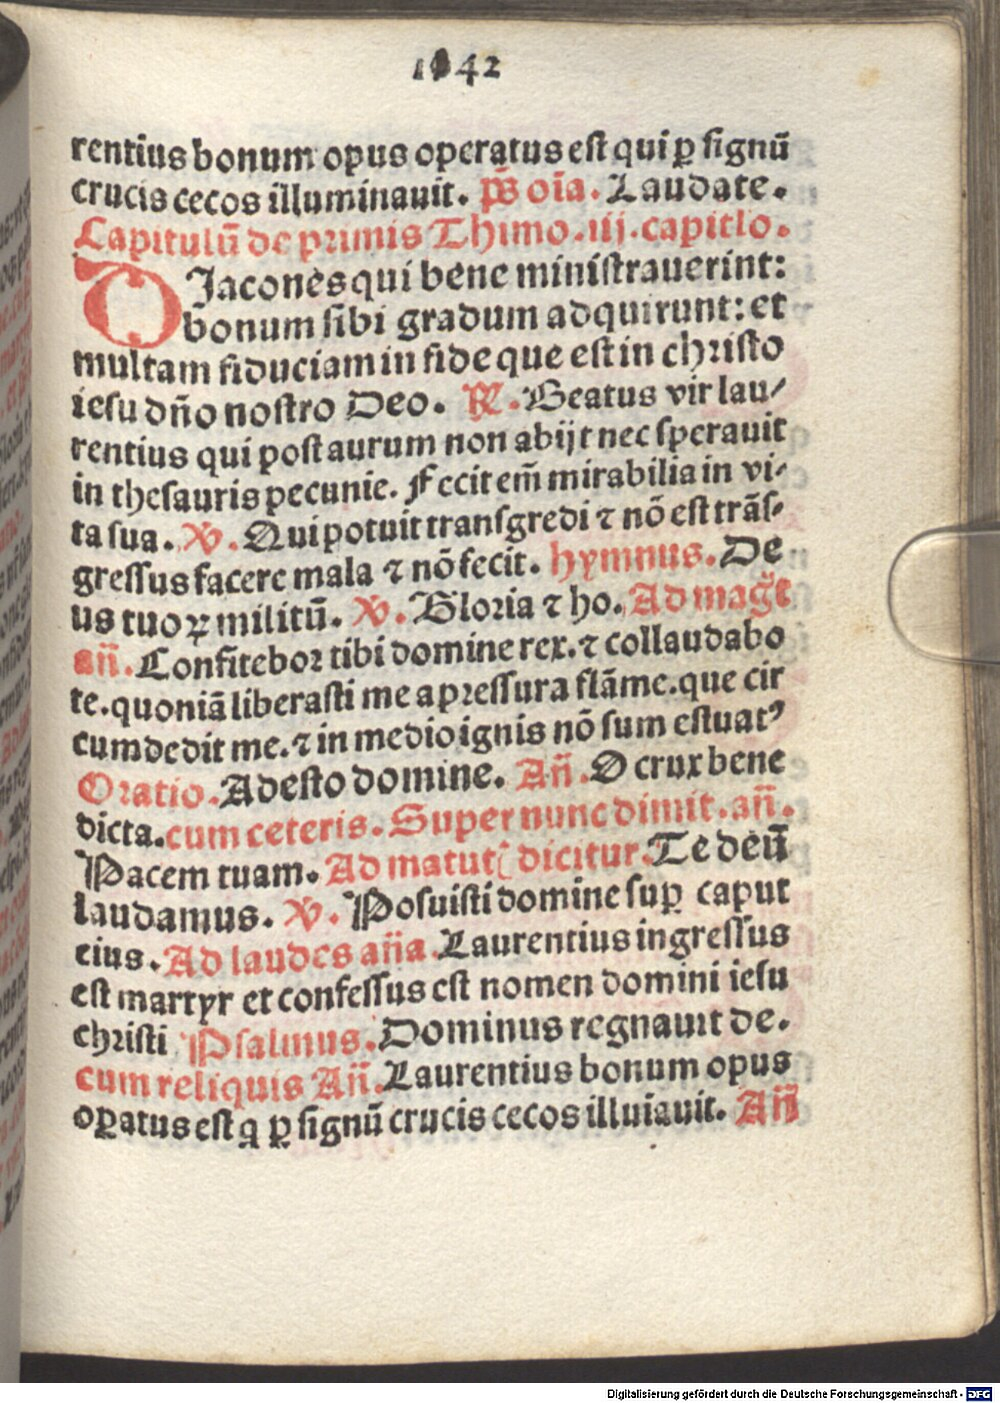 1642
rentius bonum opus operatus est qui ꝑ signū
crucis cecos illuminauit. p̄s oīa. Laudate.
Capitulū de primis Thimo.iij.capitlo.
DIacones qui bene ministrauerint:
bonum sibi gradum adquirunt: et
multam fiduciam in fide que est in christo
iesu dn̄o nostro Deo. ℟. Beatus vir lau/
rentius qui post aurum non abijt nec sperauit
in thesauris pecunie. Fecit em̄ mirabilia in vi-
ta sua. ℣. Qui potuit transgredi ⁊ nō est trās-
gressus facere mala ⁊ nō fecit. hymnus. De
us tuoꝝ militū. ℣. Gloria ⁊ ho. Ad mag̃t
an̄. Confitebor tibi domine rex. ⁊ collaudabo
te. quoniā liberasti me a pressura flāme. que cir
cumdedit me. ⁊ in medio ignis nō sum estuatꝰ
Oratio. Adesto domine. An̄. O crux bene
dicta. cum ceteris. Super nunc dimit. an̄.
Pacem tuam. Ad matut dicitur. Te deū
laudamus. ℣. Posuisti domine suꝑ caput
eius. Ad laudes an̄a. Laurentius ingressus
est martyr et confessus est nomen domini iesu
christi Psalmus. Dominus regnauit de.
cum reliquis An̄. Laurentius bonum opus
oꝑatus est q ꝑ signū crucis cecos illuīauit. An̄
Digitalisierung gefördert durch die Deutsche Forschungsgemeinschaft - DFG